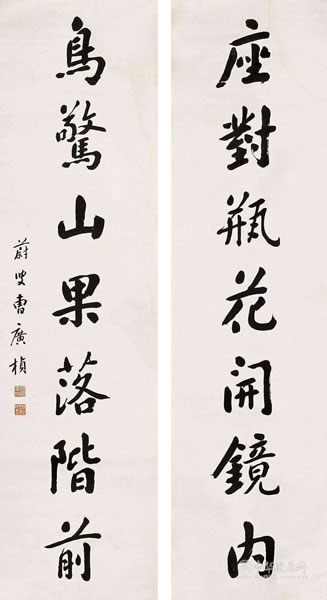 座對瓶花開鏡內
鳥驚山果落階前
蔚叟曹廣楨